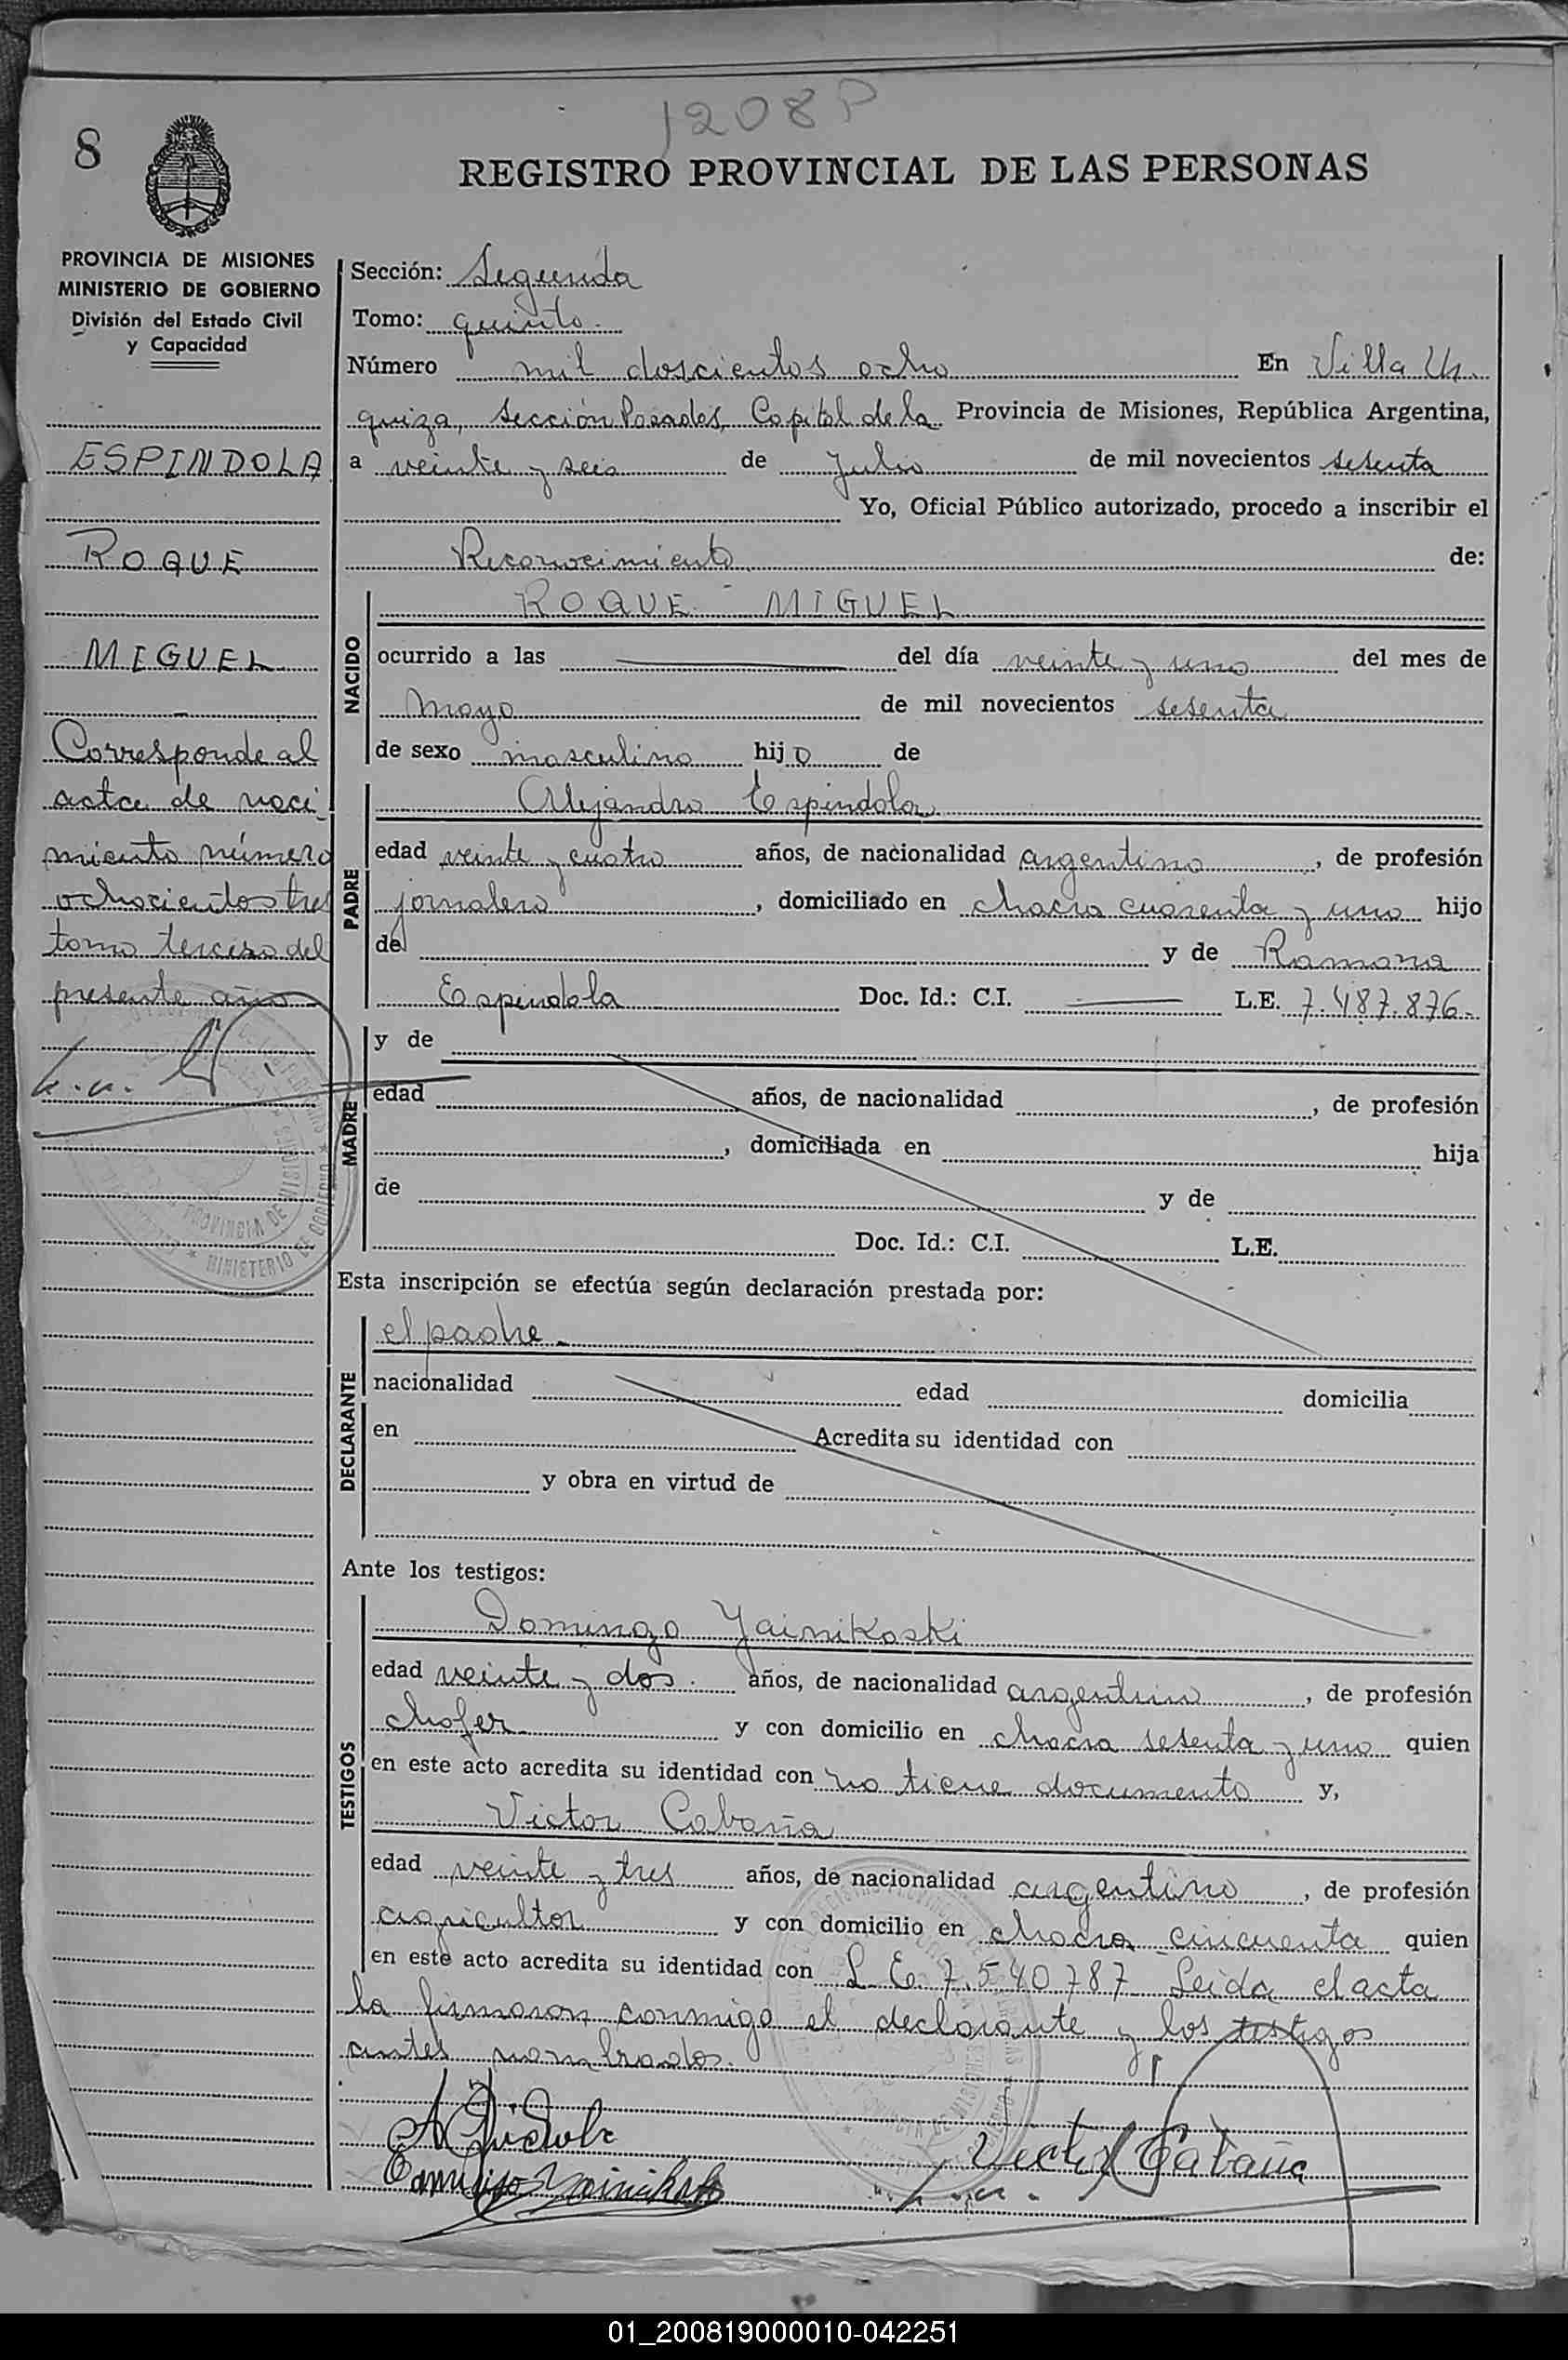 1208P
8
REGISTRO PROVINCIAL DE LAS PERSONAS
PROVINCIA DE MISIONES
MINISTERIO DE GOBIERNO
División del Estado Civil
y Capacidad
ESPINDOLA
ROQUE
MIGUEL
Corresponde al
acta de naci
miento número
ochocientos tres
tomo tercero del
presente año
Sección: Segunda
Tomo: quinto.
Número mil doscientos ocho En Villa Ur
quiza, sección Posadas, Capital de la Provincia de Misiones, República Argentina,
a veinte y seis de Julio de mil novecientos sesenta
Yo, Oficial Público autorizado, procedo a inscribir el
Reconocimiento de:
NACIDO
ROQUE MIGUEL
ocurrido a las del día veinte y uno del mes de
Mayo de mil novecientos sesenta
de sexo masculino hijo de
PADRE
Alejandro Espindola
edad veinte y cuatro años, de nacionalidad argentino, de profesión
jornalero, domiciliado en chacra cuarenta y uno hijo
de y de Ramona
Espindola Doc. Id.: C.I. L.E. 7.487.876.
MADRE
y de
edad años, de nacionalidad , de profesión
, domiciliada en hija
de y de
Doc. Id.: C.I. L.E.
Esta inscripción se efectúa según declaración prestada por:
DECLARANTE
el padre.
nacionalidad edad domicilia
en Acredita su identidad con
y obra en virtud de
Ante los testigos:
TESTIGOS
Domingo Yainikoski
edad veinte y dos. años, de nacionalidad argentino, de profesión
chofer y con domicilio en chacra sesenta y uno quien
en este acto acredita su identidad con no tiene documento y,
Victor Cabaña
edad veinte y tres años, de nacionalidad argentino, de profesión
agricultor y con domicilio en chacra cincuenta quien
en este acto acredita su identidad con L.E. 7.540787 Leida el acta
la firmaron conmigo el declarante y los testigos
antes nombrados.
Victor Cabaña
PROVINCIA DE MISIONES
MINISTERIO DE GOBIERNO
01_200819000010-042251